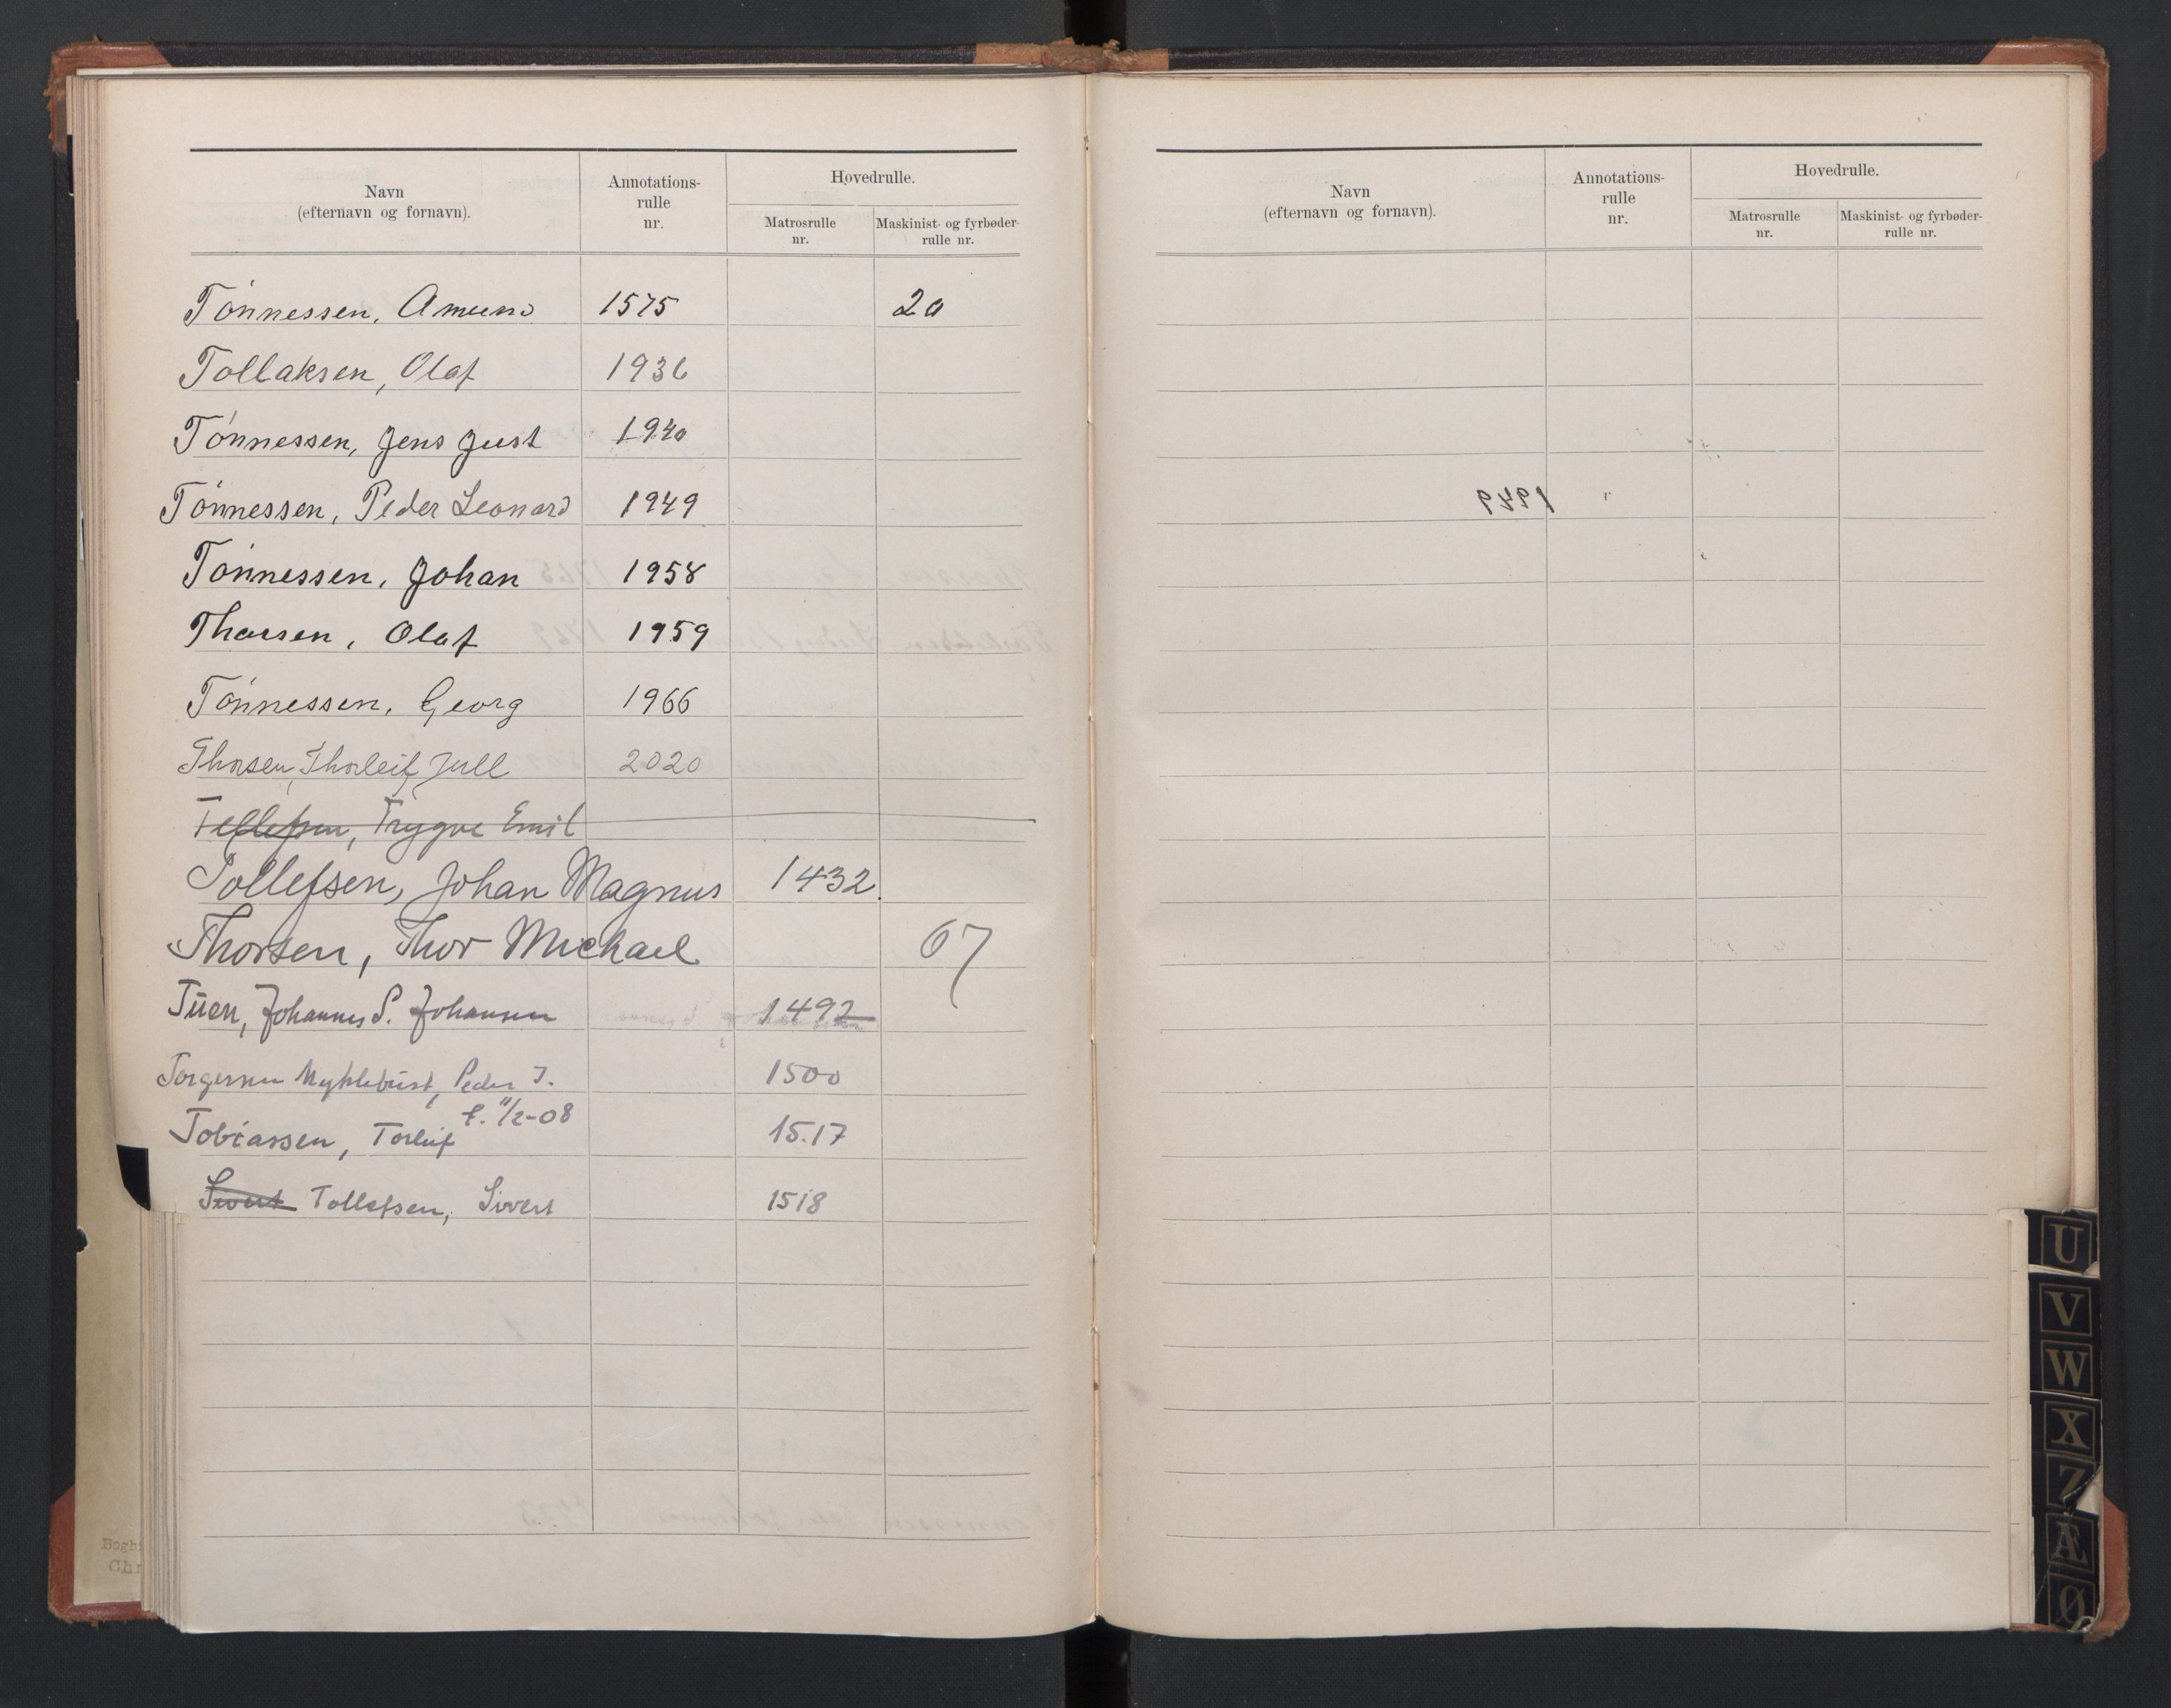 Navn
(efternavn og fornavn).
Annotations-
rulle
nr.
Hovedrulle.
Matrosrulle
nr.
Maskinist- og fyrbøder-
rulle nr.
Tönnessen, Amund 1575 20
Tollaksen, Olaf 1936
Tönnessen, Jens Just 1940
Tönnessen, Peder Leonard 1949
Tönnessen, Johan 1958
Thorsen, Olaf 1959
Tönnessen, Georg 1966
Thorsen, Thorleif Juell 2020
Tellefsen, Trygve Emil
Tollefsen, Johan Magnus 1432
Thorsen, Thor Michael 67
Tuen, Johannes S. Johansen 1492
Torgersen Myklebust, Peder T. 1500
f. 11/2-08
Tobiassen, Torleif 15.17
Sivert Tollefsen, Sivert 1518
Navn
(efternavn og fornavn).
Annotations-
rulle
nr.
Hovedrulle.
Matrosrulle
nr.
Maskinist- og fyrbøder-
rulle nr.
1949
U
V
W
X
Z
Æ
Ø